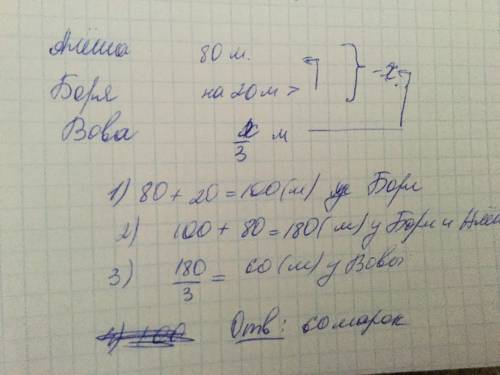 Алёша 80 м.
Боря на 20 м > } = x
Вова x/3 м
1) 80 + 20 = 100 (м) у Бори
2) 100 + 80 = 180 (м) у Бори и Алёш
3) 180/3 = 60 (м) у Вовы
4) 100 Отв: 60 марок